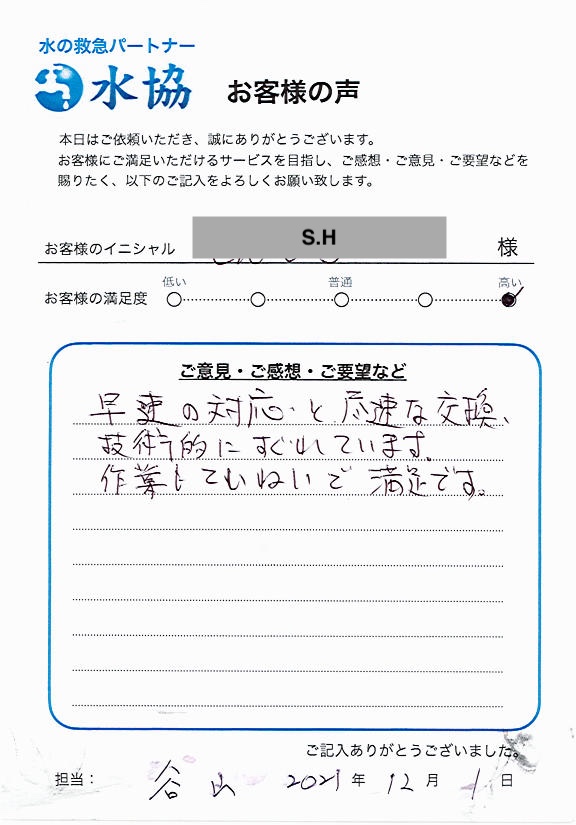 水の救急パートナー
水協 お客様の声
本日はご依頼いただき、誠にありがとうございます。
お客様にご満足いただけるサービスを目指し、ご感想・ご意見・ご要望などを
賜りたく、以下のご記入をよろしくお願い致します。
お客様のイニシャル S.H 様
低い 普通 高い
お客様の満足度
ご意見・ご感想・ご要望など
早速の対応と迅速な交換、
技術的にすぐれています。
作業もていねいで満足です。
ご記入ありがとうございました。
担当： 谷山 2021年12月1日